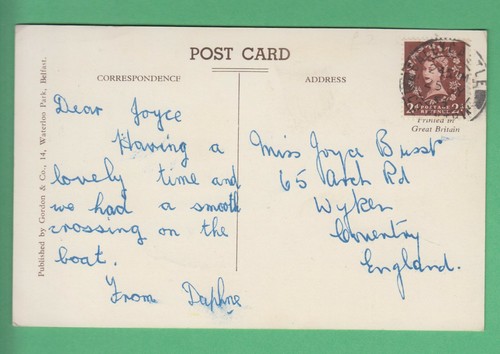 POST CARD
CORRESPONDENCE
ADDRESS
Published by Gordon & Co., 14, Waterloo Park, Belfast.
Dear Joyce
Having a
lovely time and
we had a smooth
crossing on the
boat.
From Daphne
2d POSTAGE REVENUE 2d
Printed in
Great Britain
Miss Joyce Busst
65 Arch Rd
Wyken
Coventry
England.